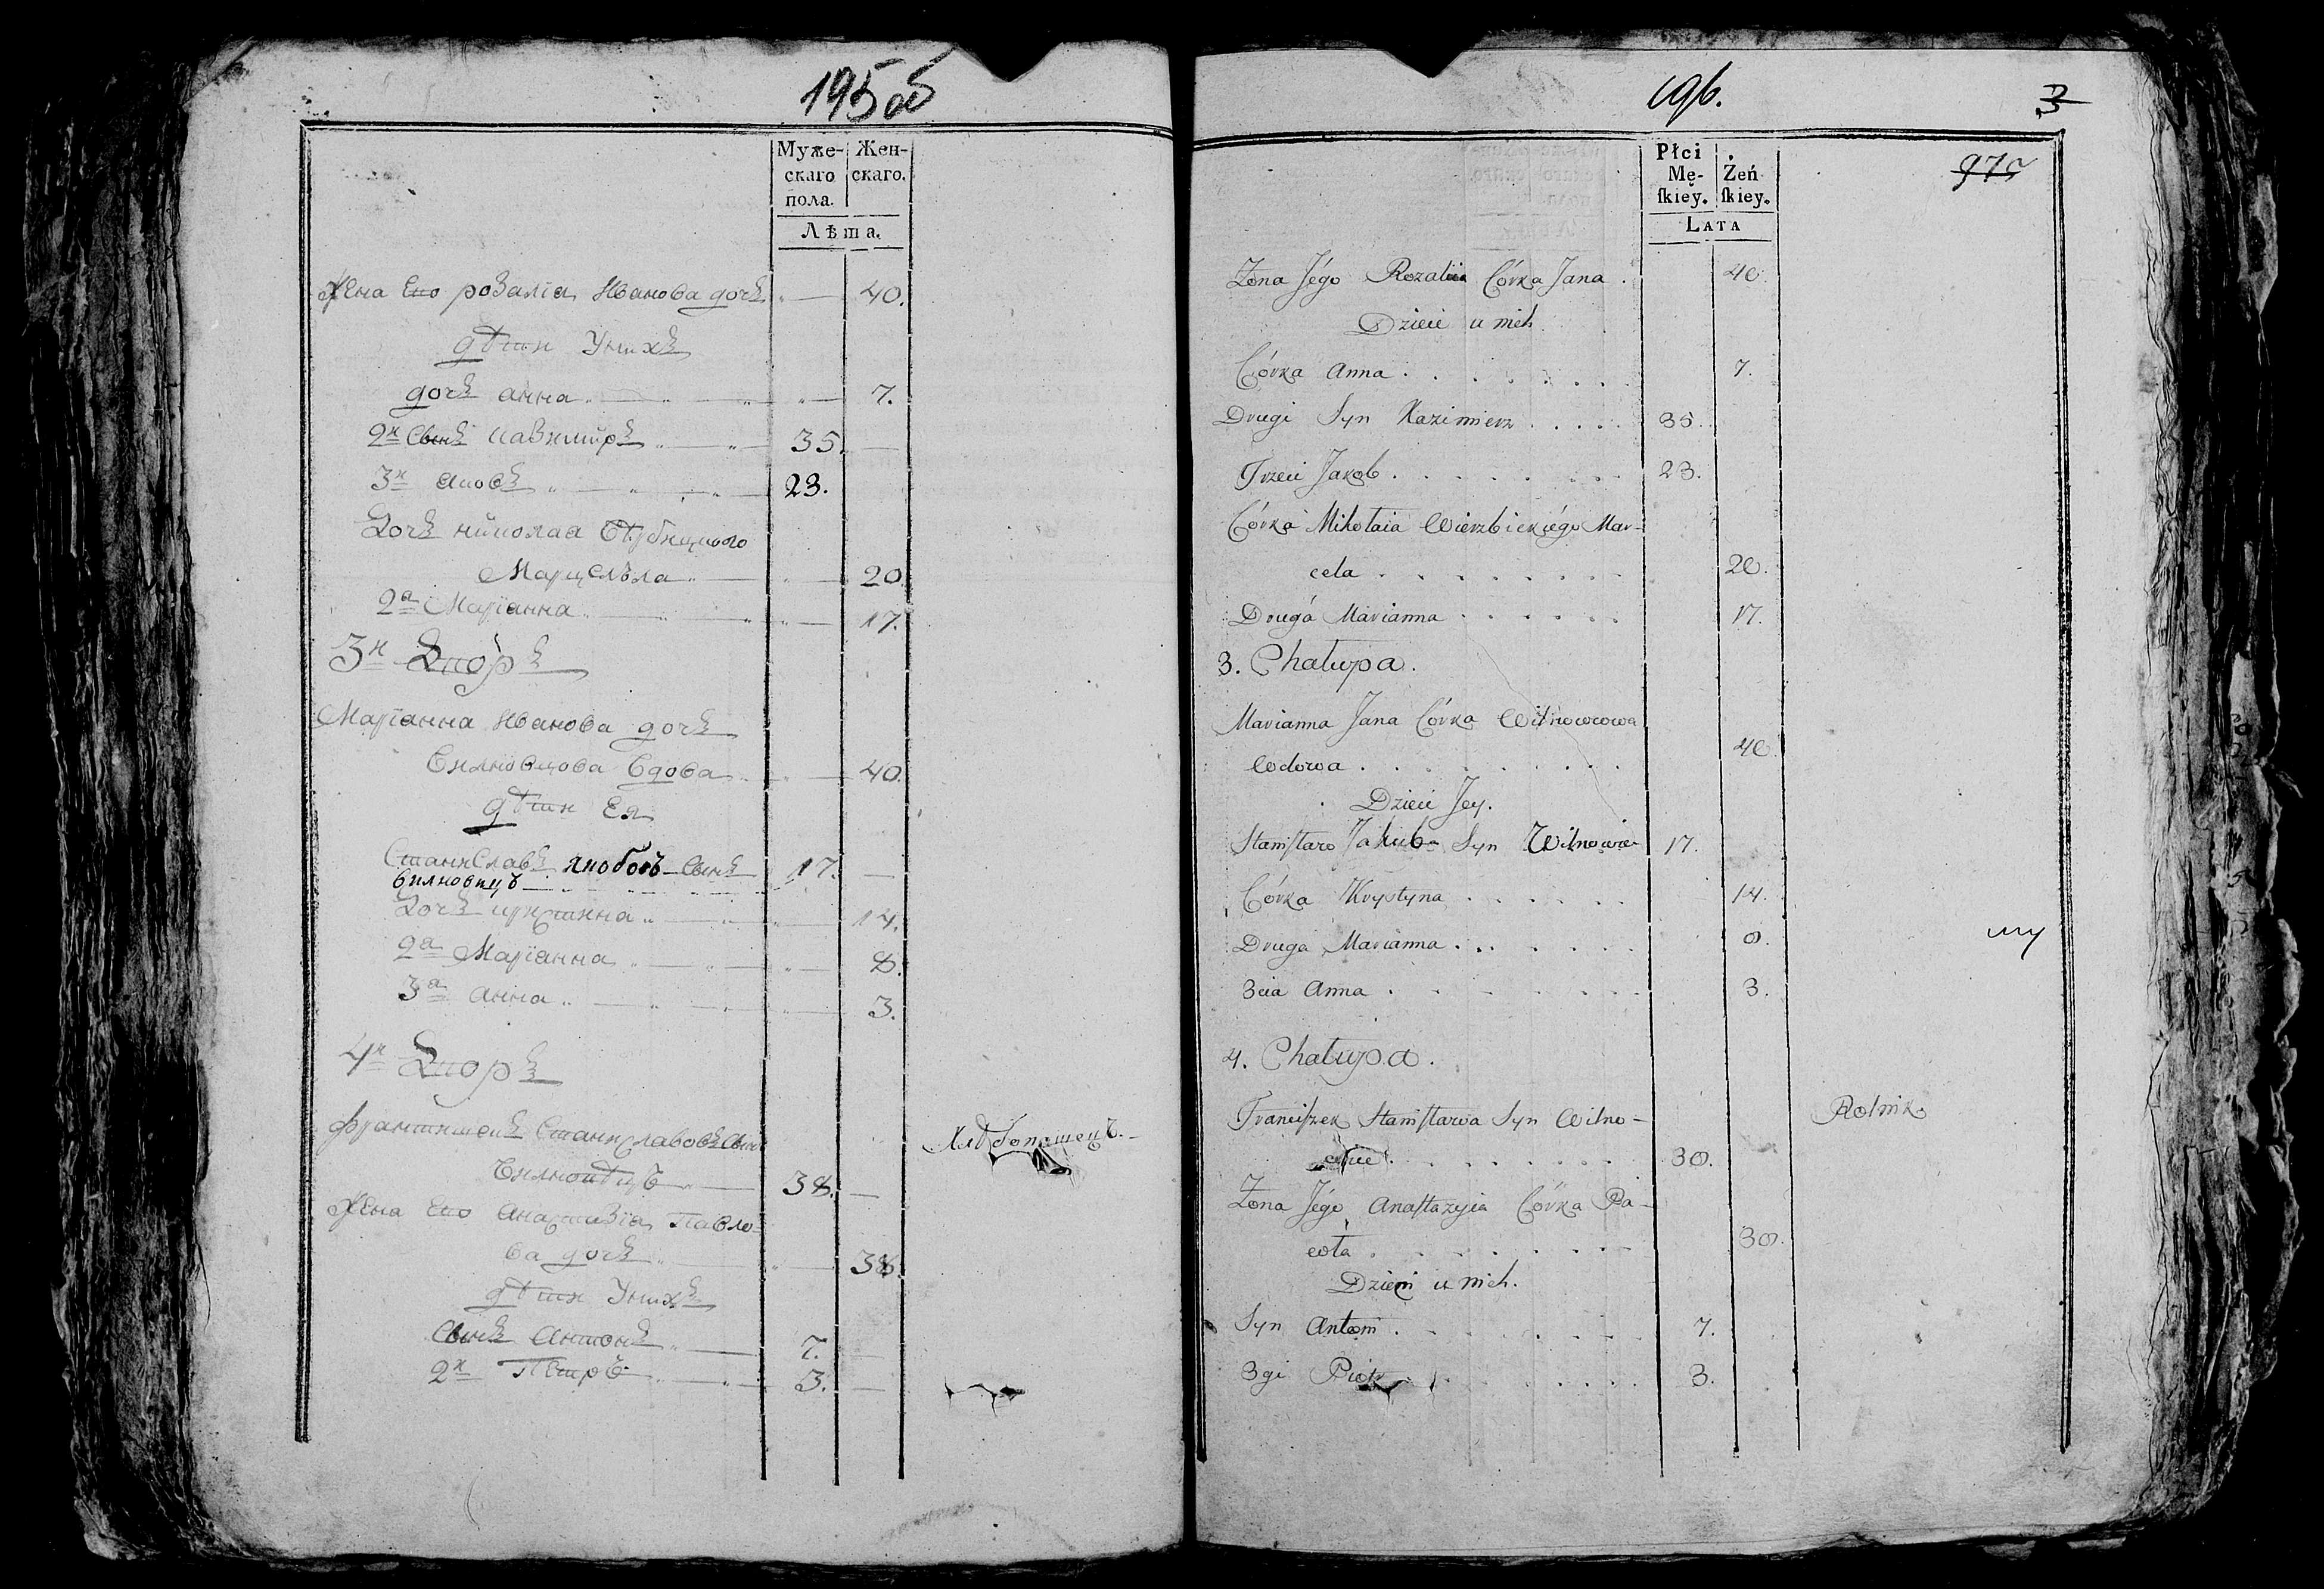 195об
Муже-
скаго
пола.
Жен-
скаго.
Лѣта.
Жена Его розалїа Иванова дочь 40.
дѣти Унихъ
дочь анна 7.
2й Сынъ казимиръ 35.
3й Якобъ 23.
Дочь николая
Марцелѣла 20.
2а Марїанна 17.
3й Дворъ
Марїанна Иванова дочь
Вилновцова Вдова 40.
дѣти Ея
Станиславъ якововъ Сынъ 17.
вилновецъ
Дочь кристина 14.
2а Марїанна 8.
3а анна 3.
4й Дворъ
францишекъ Станиславовъ Сынъ Хлѣбопашецъ.
38.
Жена Его анастазїа Павло-
ва дочь 38.
дѣти Унихъ
Сынъ антонъ 7.
2й Петръ 3.
196.
3
975
Płci
Mę-
ſkiey.
Żeń
ſkiey.
Lata
Żona Jégo Rozalia Córka Jana . 40.
Dzieci u nich.
Córka Anna . 7.
Drugi Syn Kazimierz . 35.
Trzeci Jakob . 23.
Córka Mikołaia Wierzbickiégo Mar-
cela . 20.
Druga Marianna . 17.
3. Chałupa.
Marianna Jana Córka Wilnowcowa
Wdowa . 40.
Dzieci Jey.
Staniſław Jakuba Syn Wilnowiec 17.
Córka Krystyna . 14.
Druga Marianna . 8.
3cia Anna . 3.
4. Chałupa.
Franciſzek Staniſława Syn Wilno- Rolnik
wiec . 38.
Żona Jégo Anaſtazyia Córka Pa-
wła . 38.
Dzieci u nich.
Syn Antoni . 7.
3gi Piotr . 3.